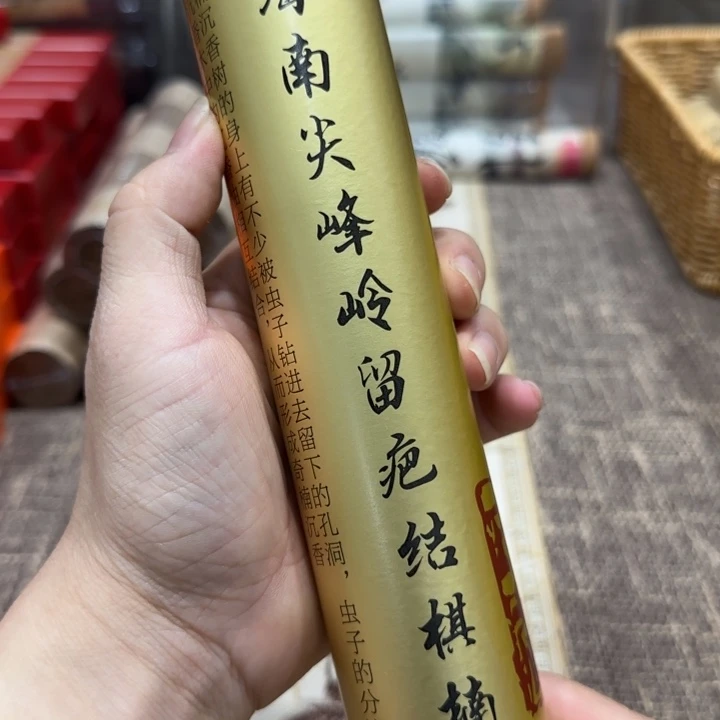 海南尖峰岭留疤结棋楠
沉香树的身上有不少被虫子钻进去留下的孔洞，虫子的分
互结合，从而形成奇楠沉香